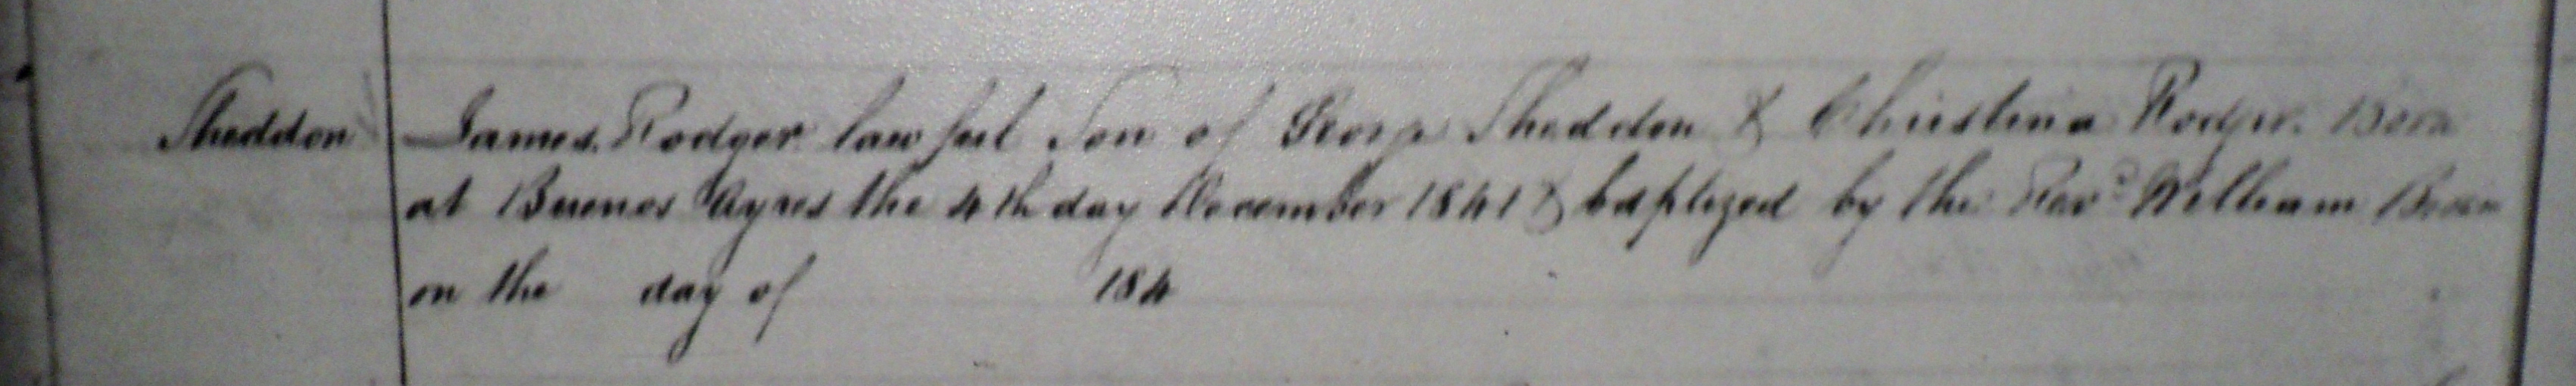 Sheddon James Rodger lawful Son of George Sheddon & Christina Rodger. Born
at Buenos Ayres the 4th day November 1841 & baptized by the Revd William Brown
on the day of 184